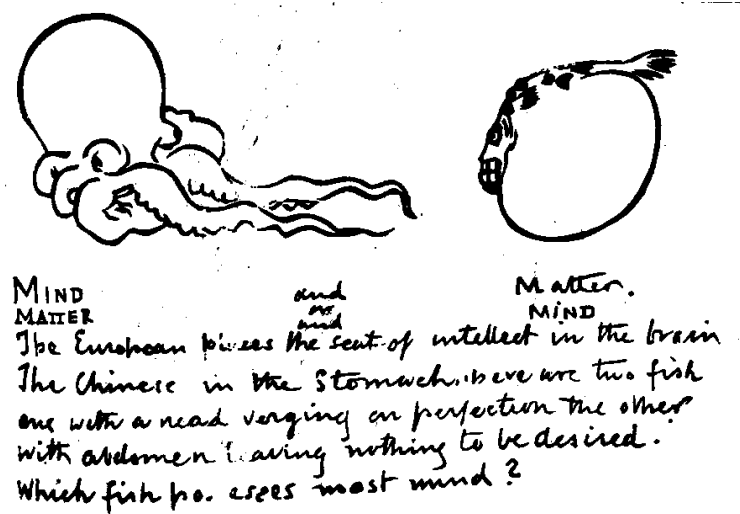 MIND and Matter.
MATTER or MIND
and
The European places the seat of intellect in the brain
The Chinese in the Stomach. here are two fish
one with a head verging on perfection the other
with abdomen leaving nothing to be desired.
Which fish po. esses most mind?